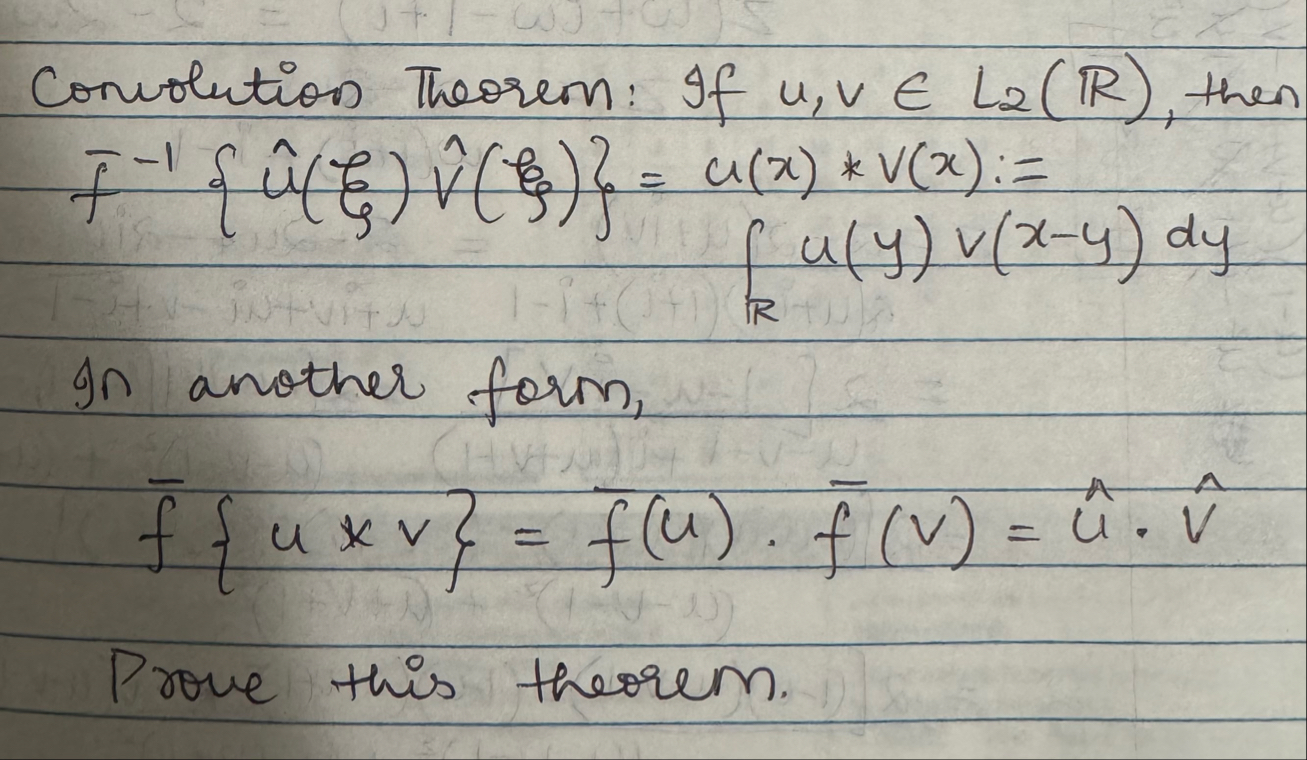 Convolution Theorem: If u, v ∈ L₂(ℝ), then
F⁻¹ { û(ξ) v̂(ξ) } = u(x) * v(x) :=
∫_ℝ u(y) v(x-y) dy
In another form,
F { u * v } = F(u) . F(v) = û . v̂
Prove this theorem.